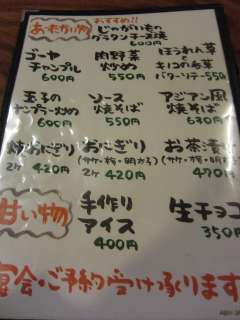 あったかい物
おすすめ!!
じゃがいもの
グラタンチーズ焼
600円
ゴーヤ
チャンプル
600円
肉野菜
炒め
550円
ほうれん草
と
キノコの
バターソテー550
玉子の
ナンプラー炒め
600円
ソース
焼そば
550円
アジアン風
焼そば
630円
焼おにぎり
2ヶ 420円
おにぎり
(サケ・梅・明太子)
2ヶ 420円
お茶漬
(サケ・梅・明
470円
甘い物
手作り
アイス
400円
生チョコ
350円
宴会・ご予約受け承ります